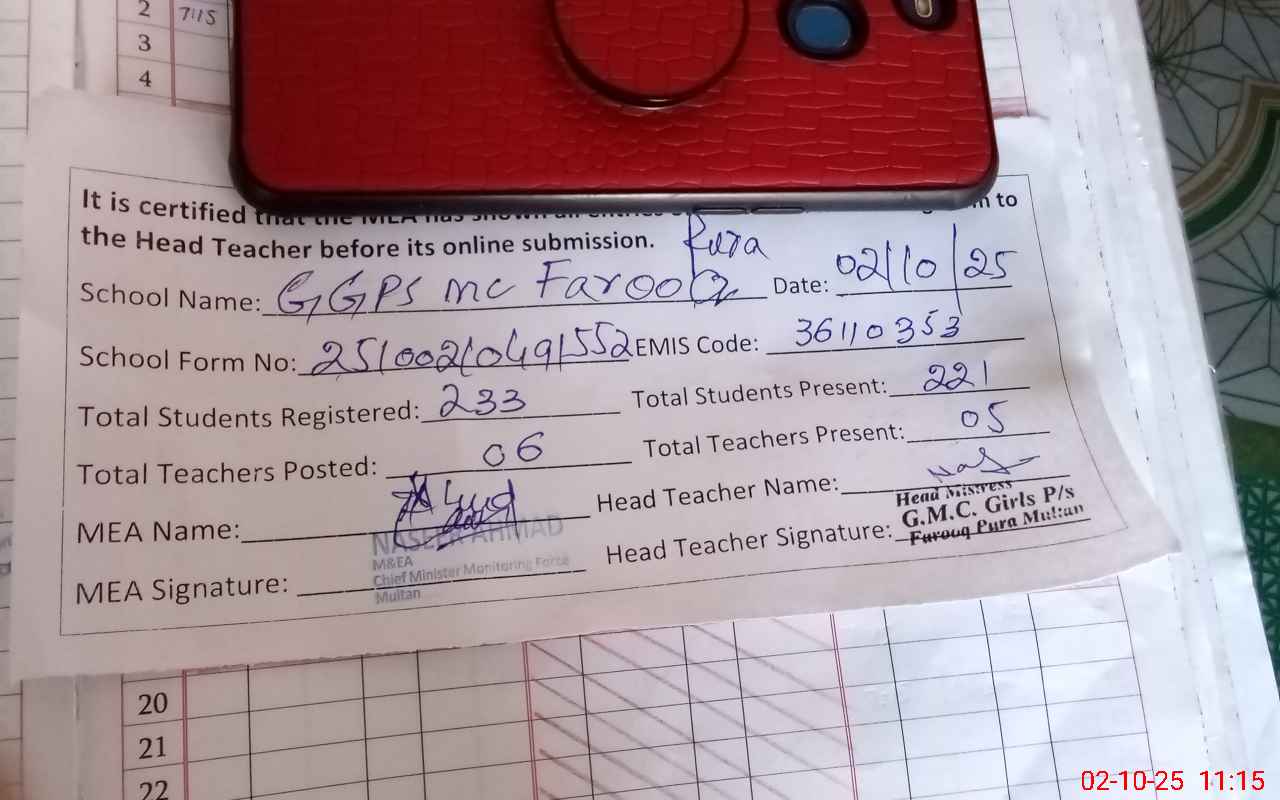 2 7:15
3
4
It is certified that the MEA has shown all entries to
the Head Teacher before its online submission.
School Name: GGPS MC Farooq Pura Date: 02/10/25
School Form No: 25100210491552 EMIS Code: 36110353
Total Students Registered: 233 Total Students Present: 221
Total Teachers Posted: 06 Total Teachers Present: 05
MEA Name: Head Teacher Name:
NASEER AHMAD
M&EA
Chief Minister Monitoring Force
Multan
MEA Signature: Head Teacher Signature:
Head Mistress
G.M.C. Girls P/s
Farooq Pura Multan
20
21
22
02-10-25 11:15